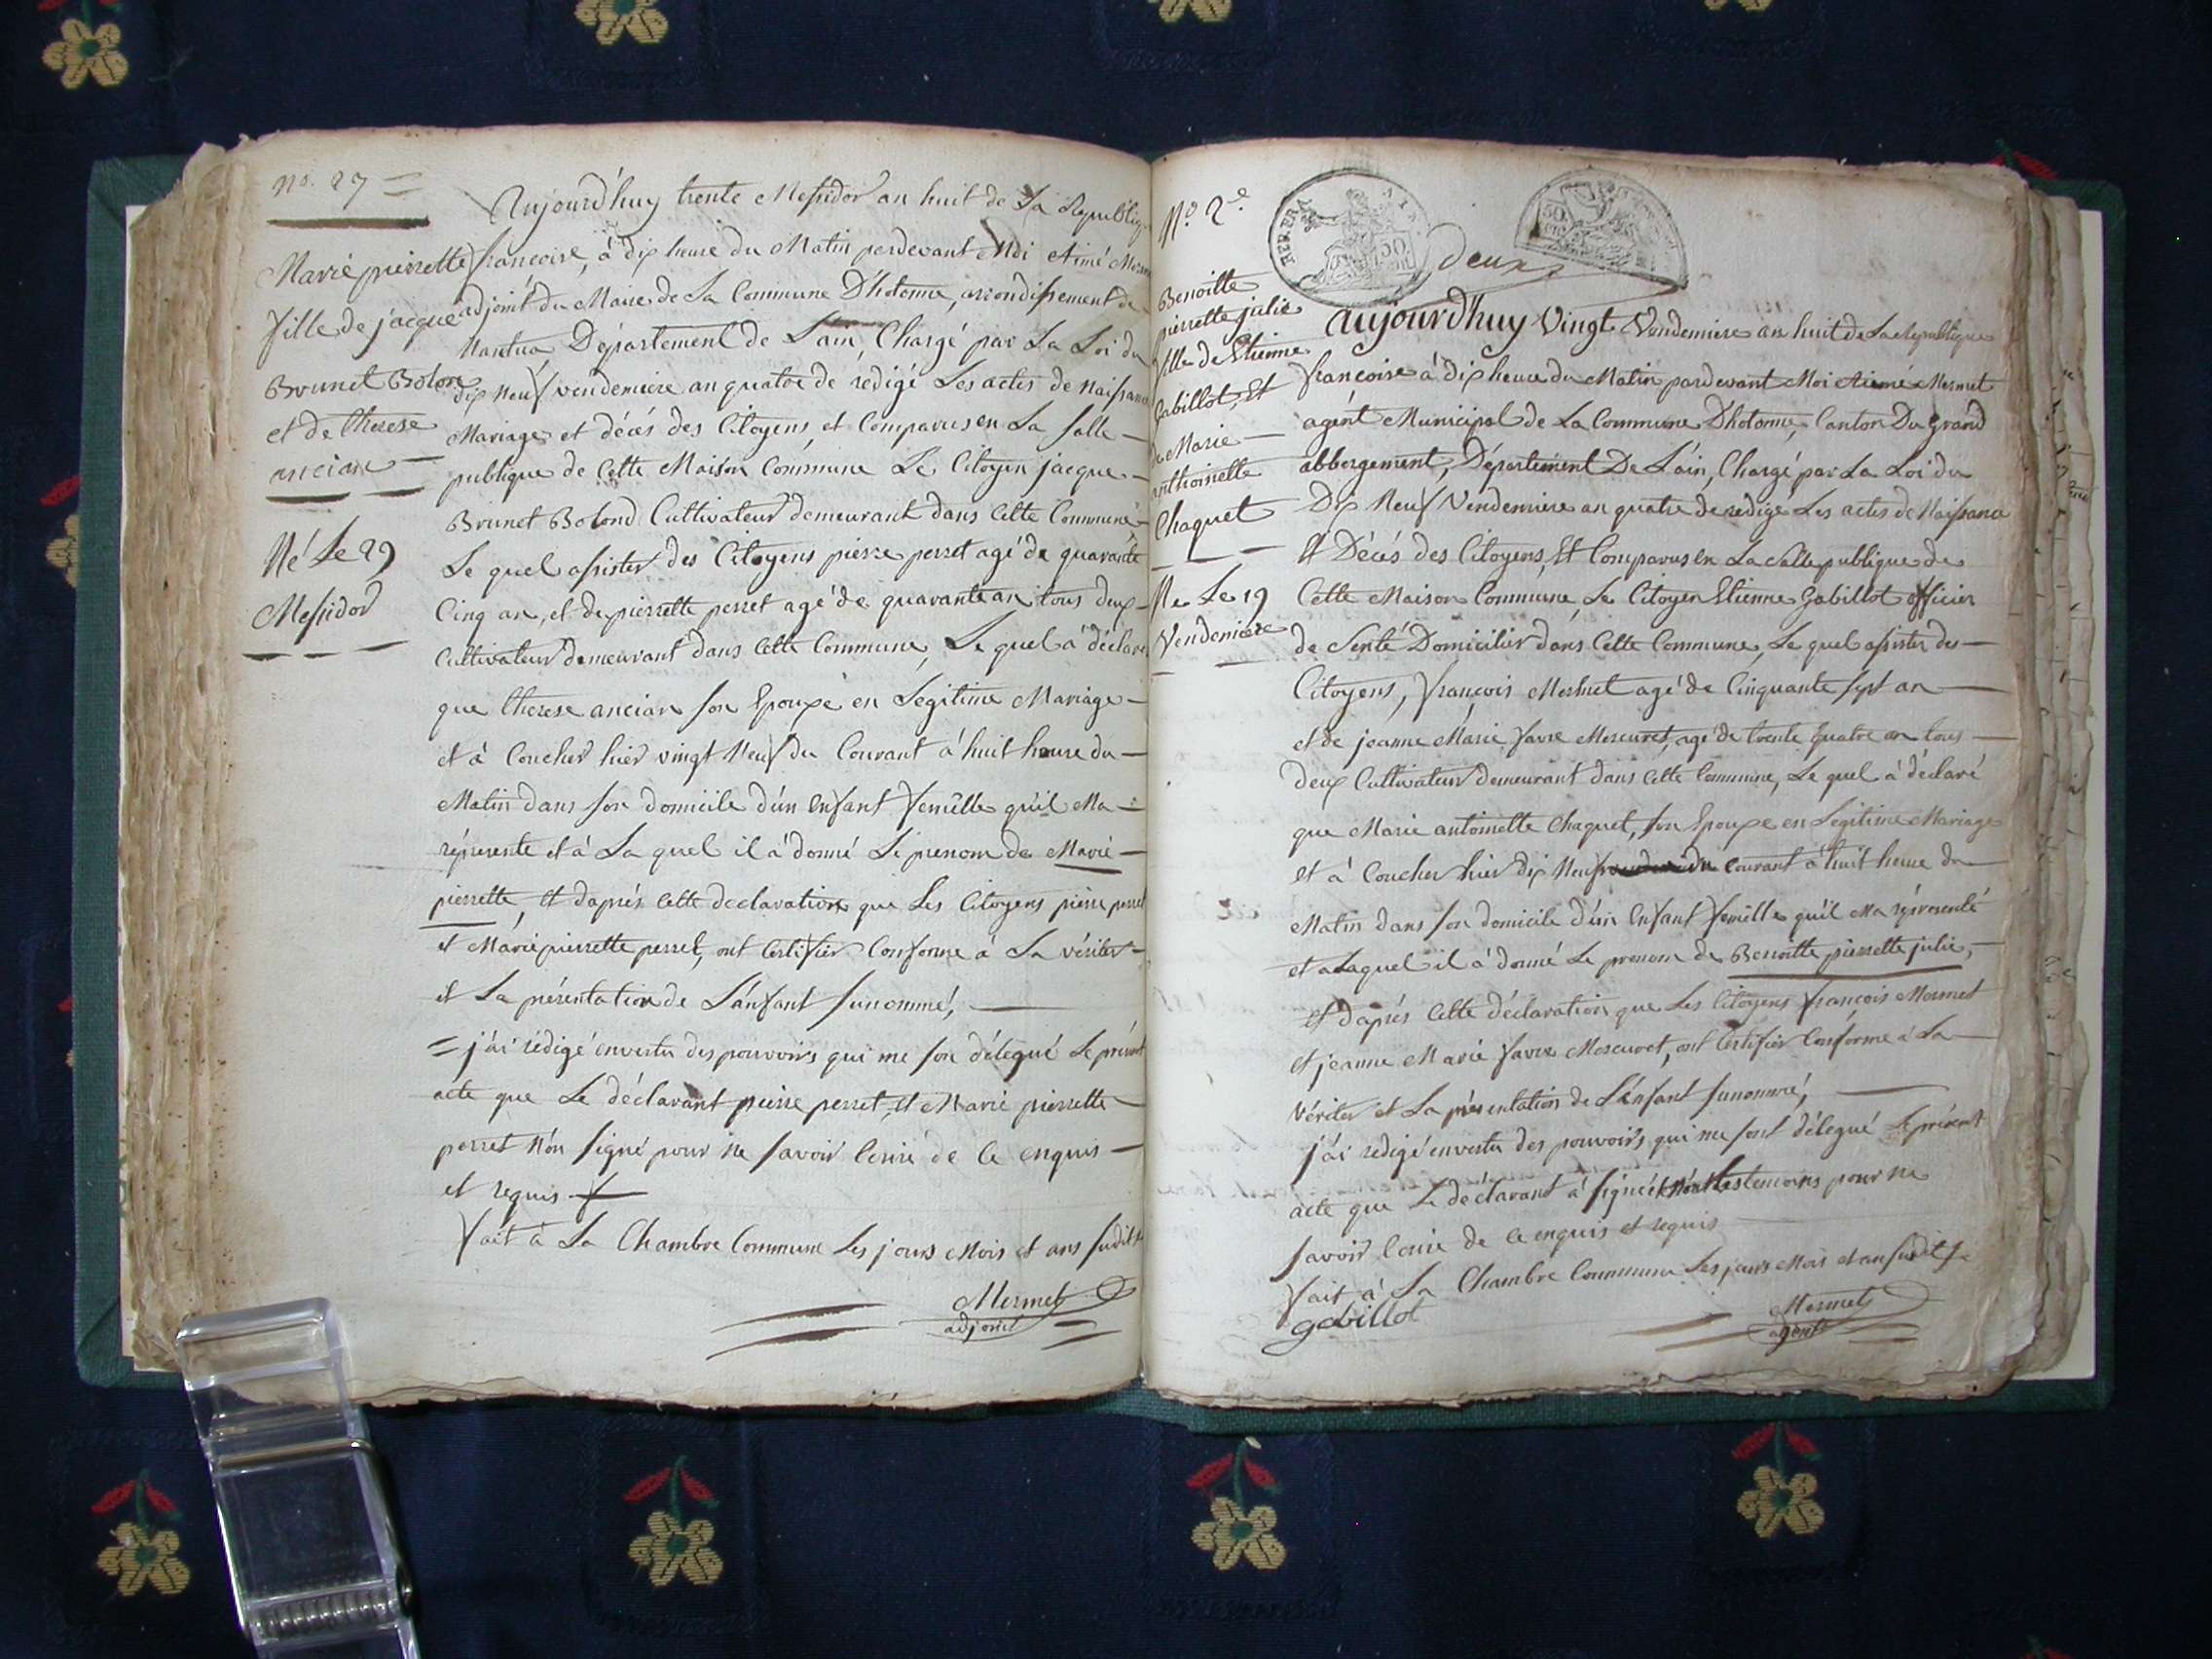 No. 27
Marie pierrette
fille de jacque
Brunet Bolon
et de therese
ancian
Né Le 29
Messidor
Aujourd'huy trente Messidor an huit de La Republiq
francoise, à dix heure du Matin pardevant Moi Aimé Merm
adjoint du Maire de La Commune D'hotonne, arrondissement de
Nantua Département de L'ain, Chargé par La Loi du
dix Neuf vendemiere an quatre de redigé Les actes de naissance
Mariage et décés des Citoyens, et Comparus en La Salle
publique de Cette Maison Commune Le Citoyen jacque
Brunet Bolond Cultivateur demeurant dans Cette Commune
Le quel assister des Citoyens pierre perret agé de quarante
Cinq an, et de pierrette perret agé de quarante an tous deux
Cultivateur demeurant dans Cette Commune, Le quel à déclaré
que therese ancian son Epouxe en Légitime Mariage
et à Coucher hier vingt Neuf du Courant à huit heure du
Matin dans son domicile d'un Enfant femelle qu'il Ma
réprésente et à La quel il à donné Le prenom de Marie
pierrette, Et d'aprés Cette declaration que Les Citoyens pierre perret
et Marie pierrette perret, ont Certifier Conforme à La vériter
et La présentation de L'énfant Sunommé,
= j'ai rédigé envertu des pouvoirs qui me son délegué Le présent
acte que Le déclarant pierre perret, et Marie pierrette
perret Nón signé pour Ne savoir Ecriré de Ce enquis
et requis
fait à La Chambre Commune Les jours Mois et ans susdits
Mermet
adjoint
No 2e
BERBERA AIN
50
50
deux
Benoitte
pierrette julie
fille de Etienne
Gabillot, Et
de Marie
anthoinette
Chaquet
Ne Le 19
Vendemiere
Aujourd'huy Vingt Vendemiere an huit de La Republique
francoise à dix heure du Matin pardevant Moi Aimé Mermet
agént Municipal de La Commune D'hotonne, Canton Du Grand
abbergement, Département De L'ain, Chargé par La Loi du
Dix Neuf Vendemiere an quatre de redigé Les actes de Naissance
Et Décés des Citoyens, Et Comparus en La Salle publique de
Cette Maison Commune, Le Citoyen Etienne Gabillot officier
de Senté Domicilier dans Cette Commune, Le quel assister des
Citoyens, françois Mermet agé de Cinquante sept an
et de jeanne Marie favre Mercuret, agé de trente quatre an tous
deux Cultivateur demeurant dans Cette Commune, Le quel à déclaré
que Marie antoinette Chaquet, son Epouxe en Légitime Mariage
et à Coucher hier dix Neuf Courant à huit heure du
Matin dans son domicile d'un Enfant femelle qu'il Ma réprésenté
et a Laquel il à donné Le prenom de Benoitte pierrette julie,
et d'aprés Cette déclaration que Les Citoyens françois Mermet
et jeanne Marie favre Mercuret, ont Certifier Conforme à La
Vériter et La présentation de L'énfant Sunommé,
j'ai redigé envertu des pouvoirs qui me sont délegué Le présent
acte que Le déclarant à signé Les temoins pour Ne
savoir Ecrire de Ce enquis et requis
fait à La Chambre Commune Les jours Mois et an susdits
gabillot
Mermet
agent